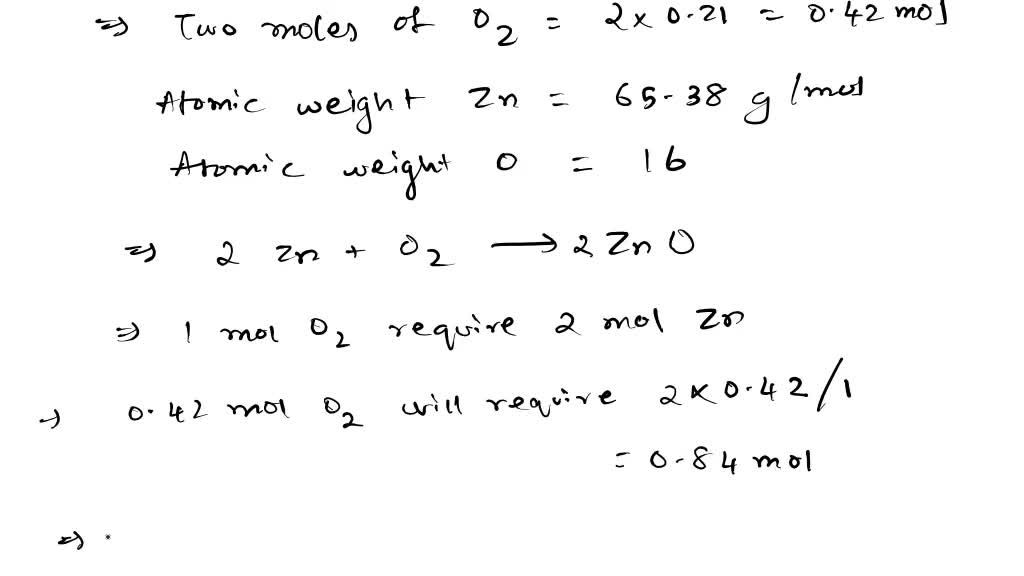 ⇒ Two moles of O2 = 2 x 0.21 = 0.42 mol
Atomic weight Zn = 65.38 g/mol
Atomic weight O = 16
⇒ 2 Zn + O2 → 2 ZnO
⇒ 1 mol O2 require 2 mol Zn
→ 0.42 mol O2 will require 2 x 0.42/1
= 0.84 mol
⇒ .